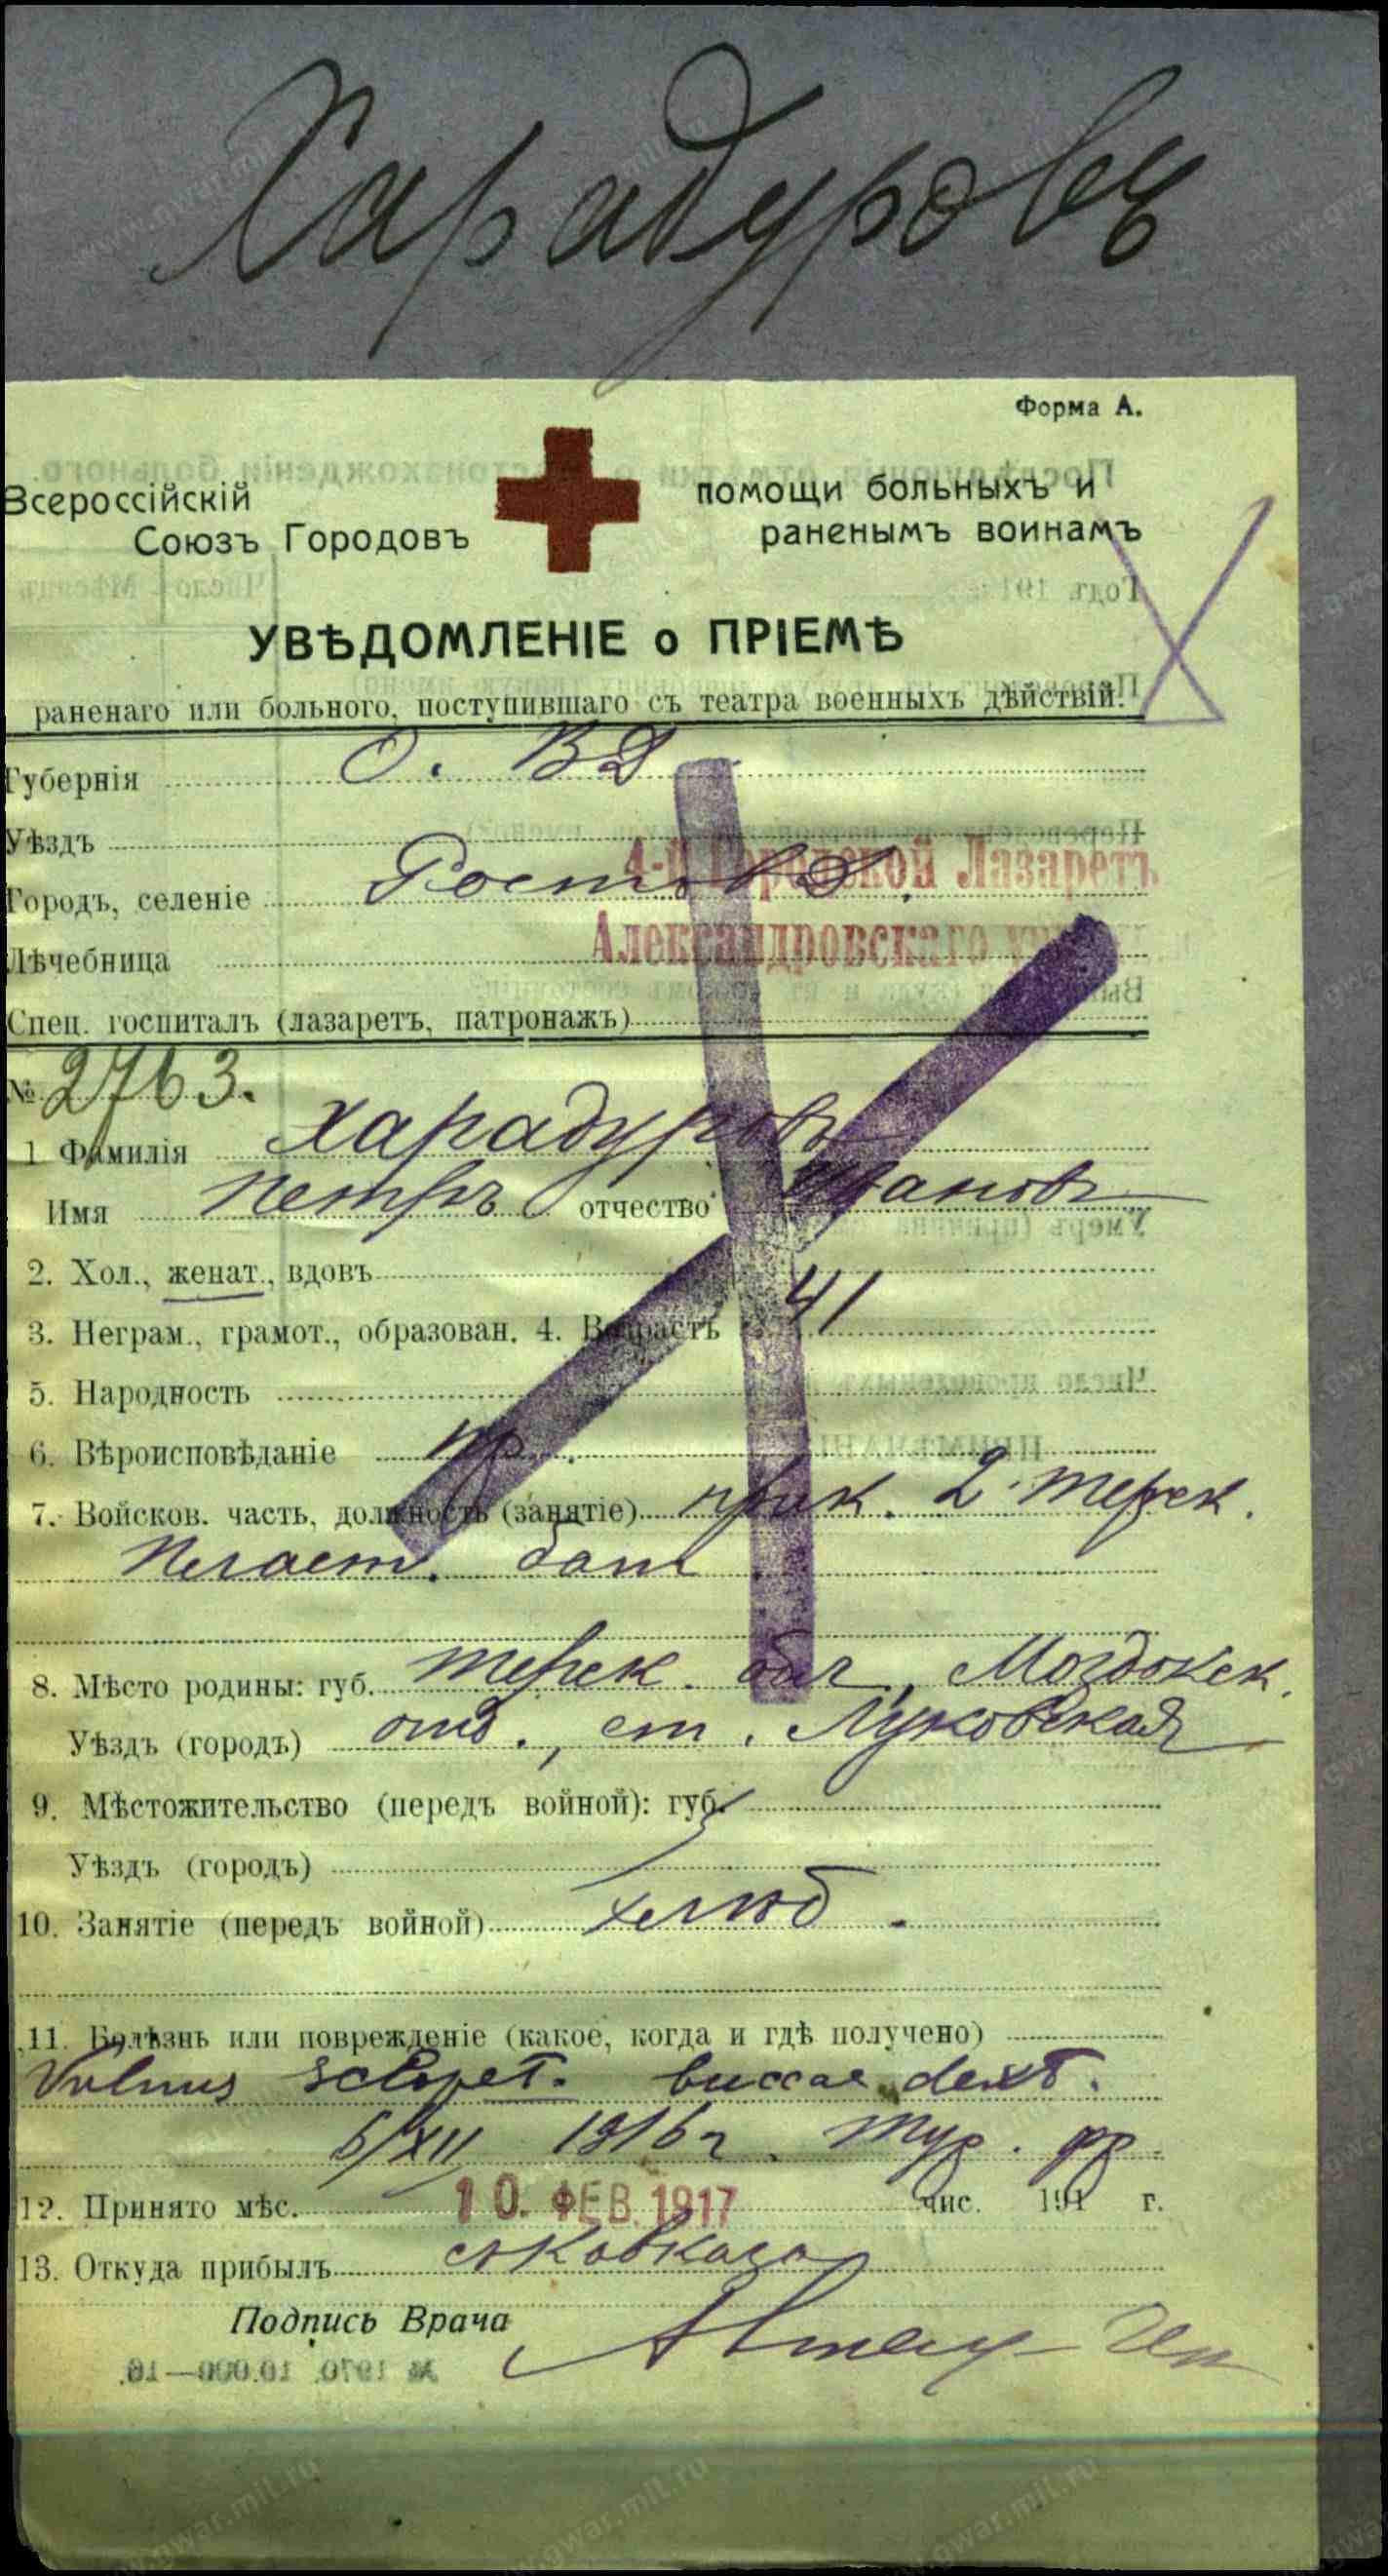 Харадуровъ
Форма А.
Всероссійскій
Союзъ Городовъ
помощи больныхъ и
раненымъ воинамъ
УВѢДОМЛЕНІЕ о ПРІЕМѢ
раненаго или больного, поступившаго съ театра военныхъ дѣйствій.
Губернія О. В Д
Уѣздъ
4-й Городской Лазаретъ
Городъ, селеніе Ростов Д.
Александровскаго
Лѣчебница
Спец. госпиталъ (лазаретъ, патронажъ)
№ 2763.
1 Фамилія Харадуровъ
Имя Петръ отчество Ивановъ
2. Хол., женат., вдовъ
3. Неграм., грамот., образован. 4. Возрастъ 41
5. Народность
6. Вѣроисповѣданіе пр.
7. Войсков. часть, должность (занятіе) прик. 2 Терек.
Пласт. бат
8. Мѣсто родины: губ. Терек. обл, Моздокск.
Уѣздъ (городъ) отд., ст. Луковская
9. Мѣстожительство (передъ войной): губ.
Уѣздъ (городъ)
10. Занятіе (передъ войной) хлѣб.
11. Болѣзнь или поврежденіе (какое, когда и гдѣ получено)
Vulnus sclopet. buccae dext.
6/XII 1916 г. Тур. фр.
12. Принято мѣс. 10. ФЕВ. 1917 чис. 191 г.
13. Откуда прибылъ с Кавказа
Подпись Врача